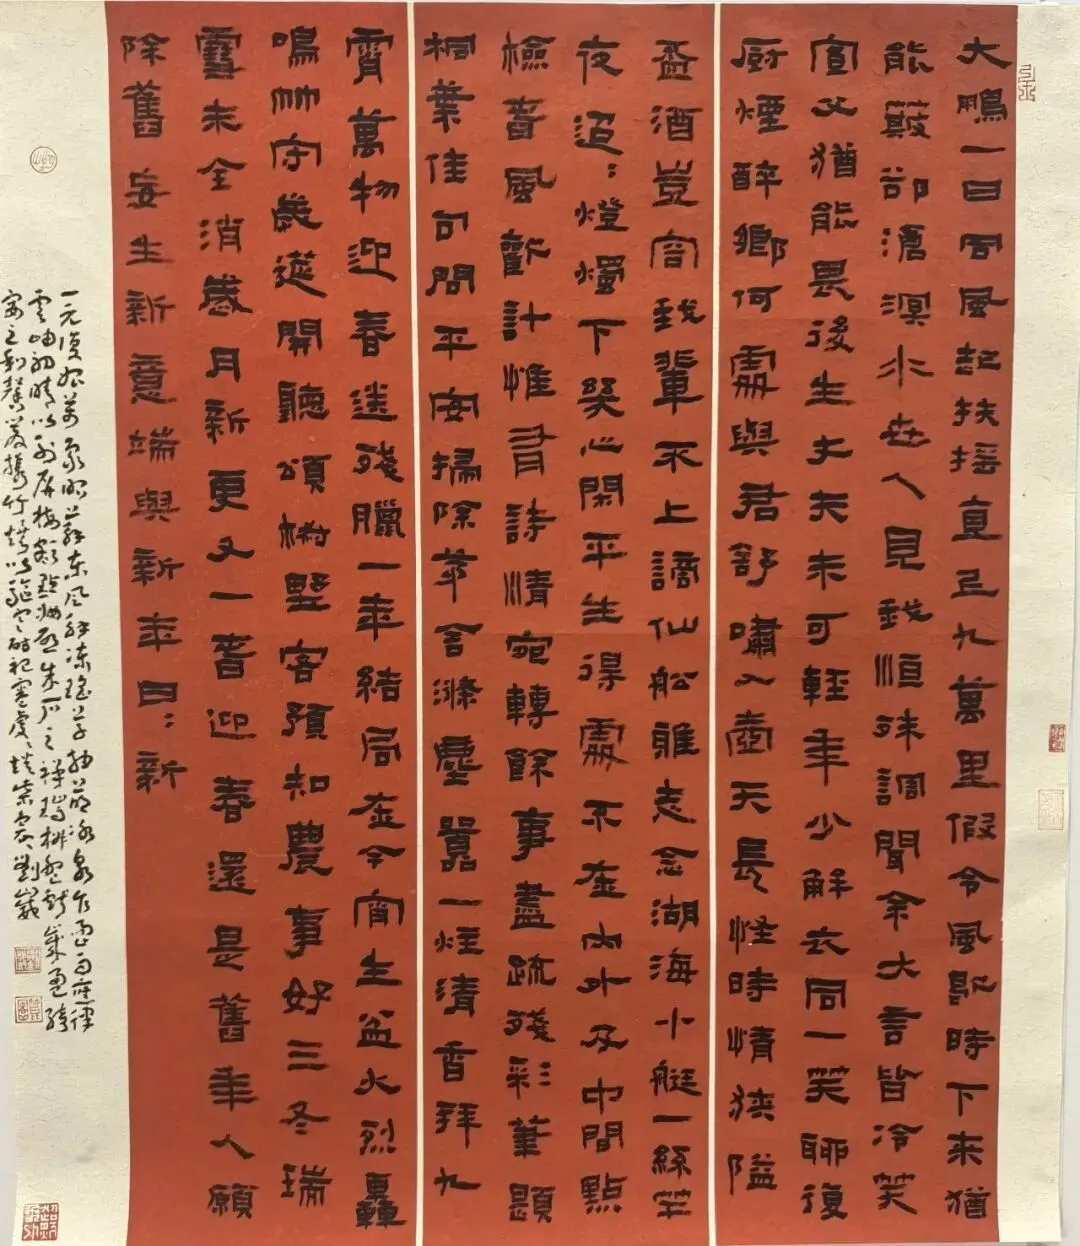 大鵬一日同風起扶搖直上九萬里假令風歇時下來猶
能簸卻滄溟水世人見我恒殊調聞余大言皆冷笑
宣父猶能畏後生丈夫未可輕年少解衣同一笑聊復
厨煙醉鄉何處與君舒嘯入壺天長怪時情狹隘
盃酒豈容我輩不上謫仙船雖志念湖海小艇一絲竿
夜迢〻燈燭下笑心閑平生得處不在內外及中間點
檢春風歡計惟有詩情宛轉餘事盡疏殘彩筆題
桐葉佳句問平安掃除茅舍滌塵囂一炷清香拜九
霄萬物迎春送殘臘一年結局在今宵生盆火烈轟
鳴竹守歲筵開聽頌椒野客預知農事好三冬瑞
雪未全消歲月新更又一春迎春還是舊年人願
除舊妄生新意端與新年日〻新
一元復始萬象昭蘇東風解凍瑤草抽芽冰泉作